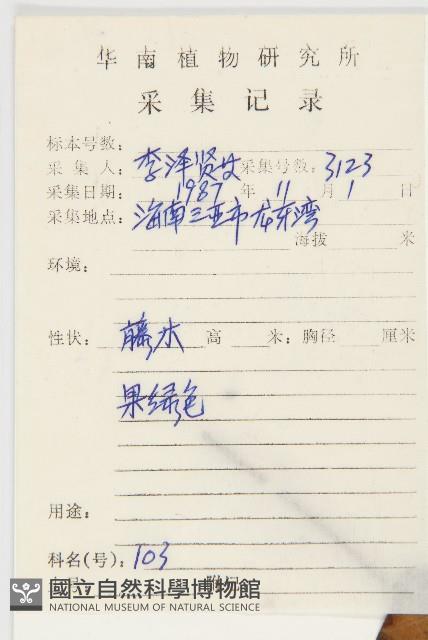 华南植物研究所
采集记录
标本号数：
采集人：李泽贤等 采集号数：3123
采集日期：1987年11月1日
采集地点：海南三亚市龙东湾
海拔 米
环境：
性状：藤木 高 米；胸径 厘米
果绿色
用途：
科名（号）：103
國立自然科學博物館
NATIONAL MUSEUM OF NATURAL SCIENCE